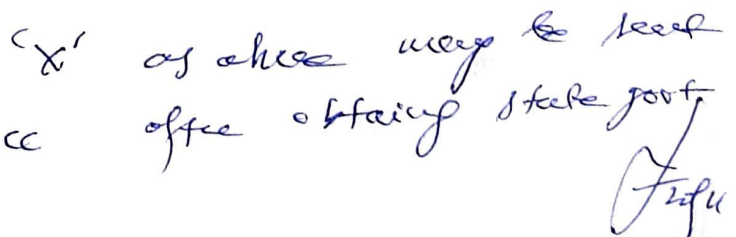 'X' as above may be sent
cc after obtaining state govt.